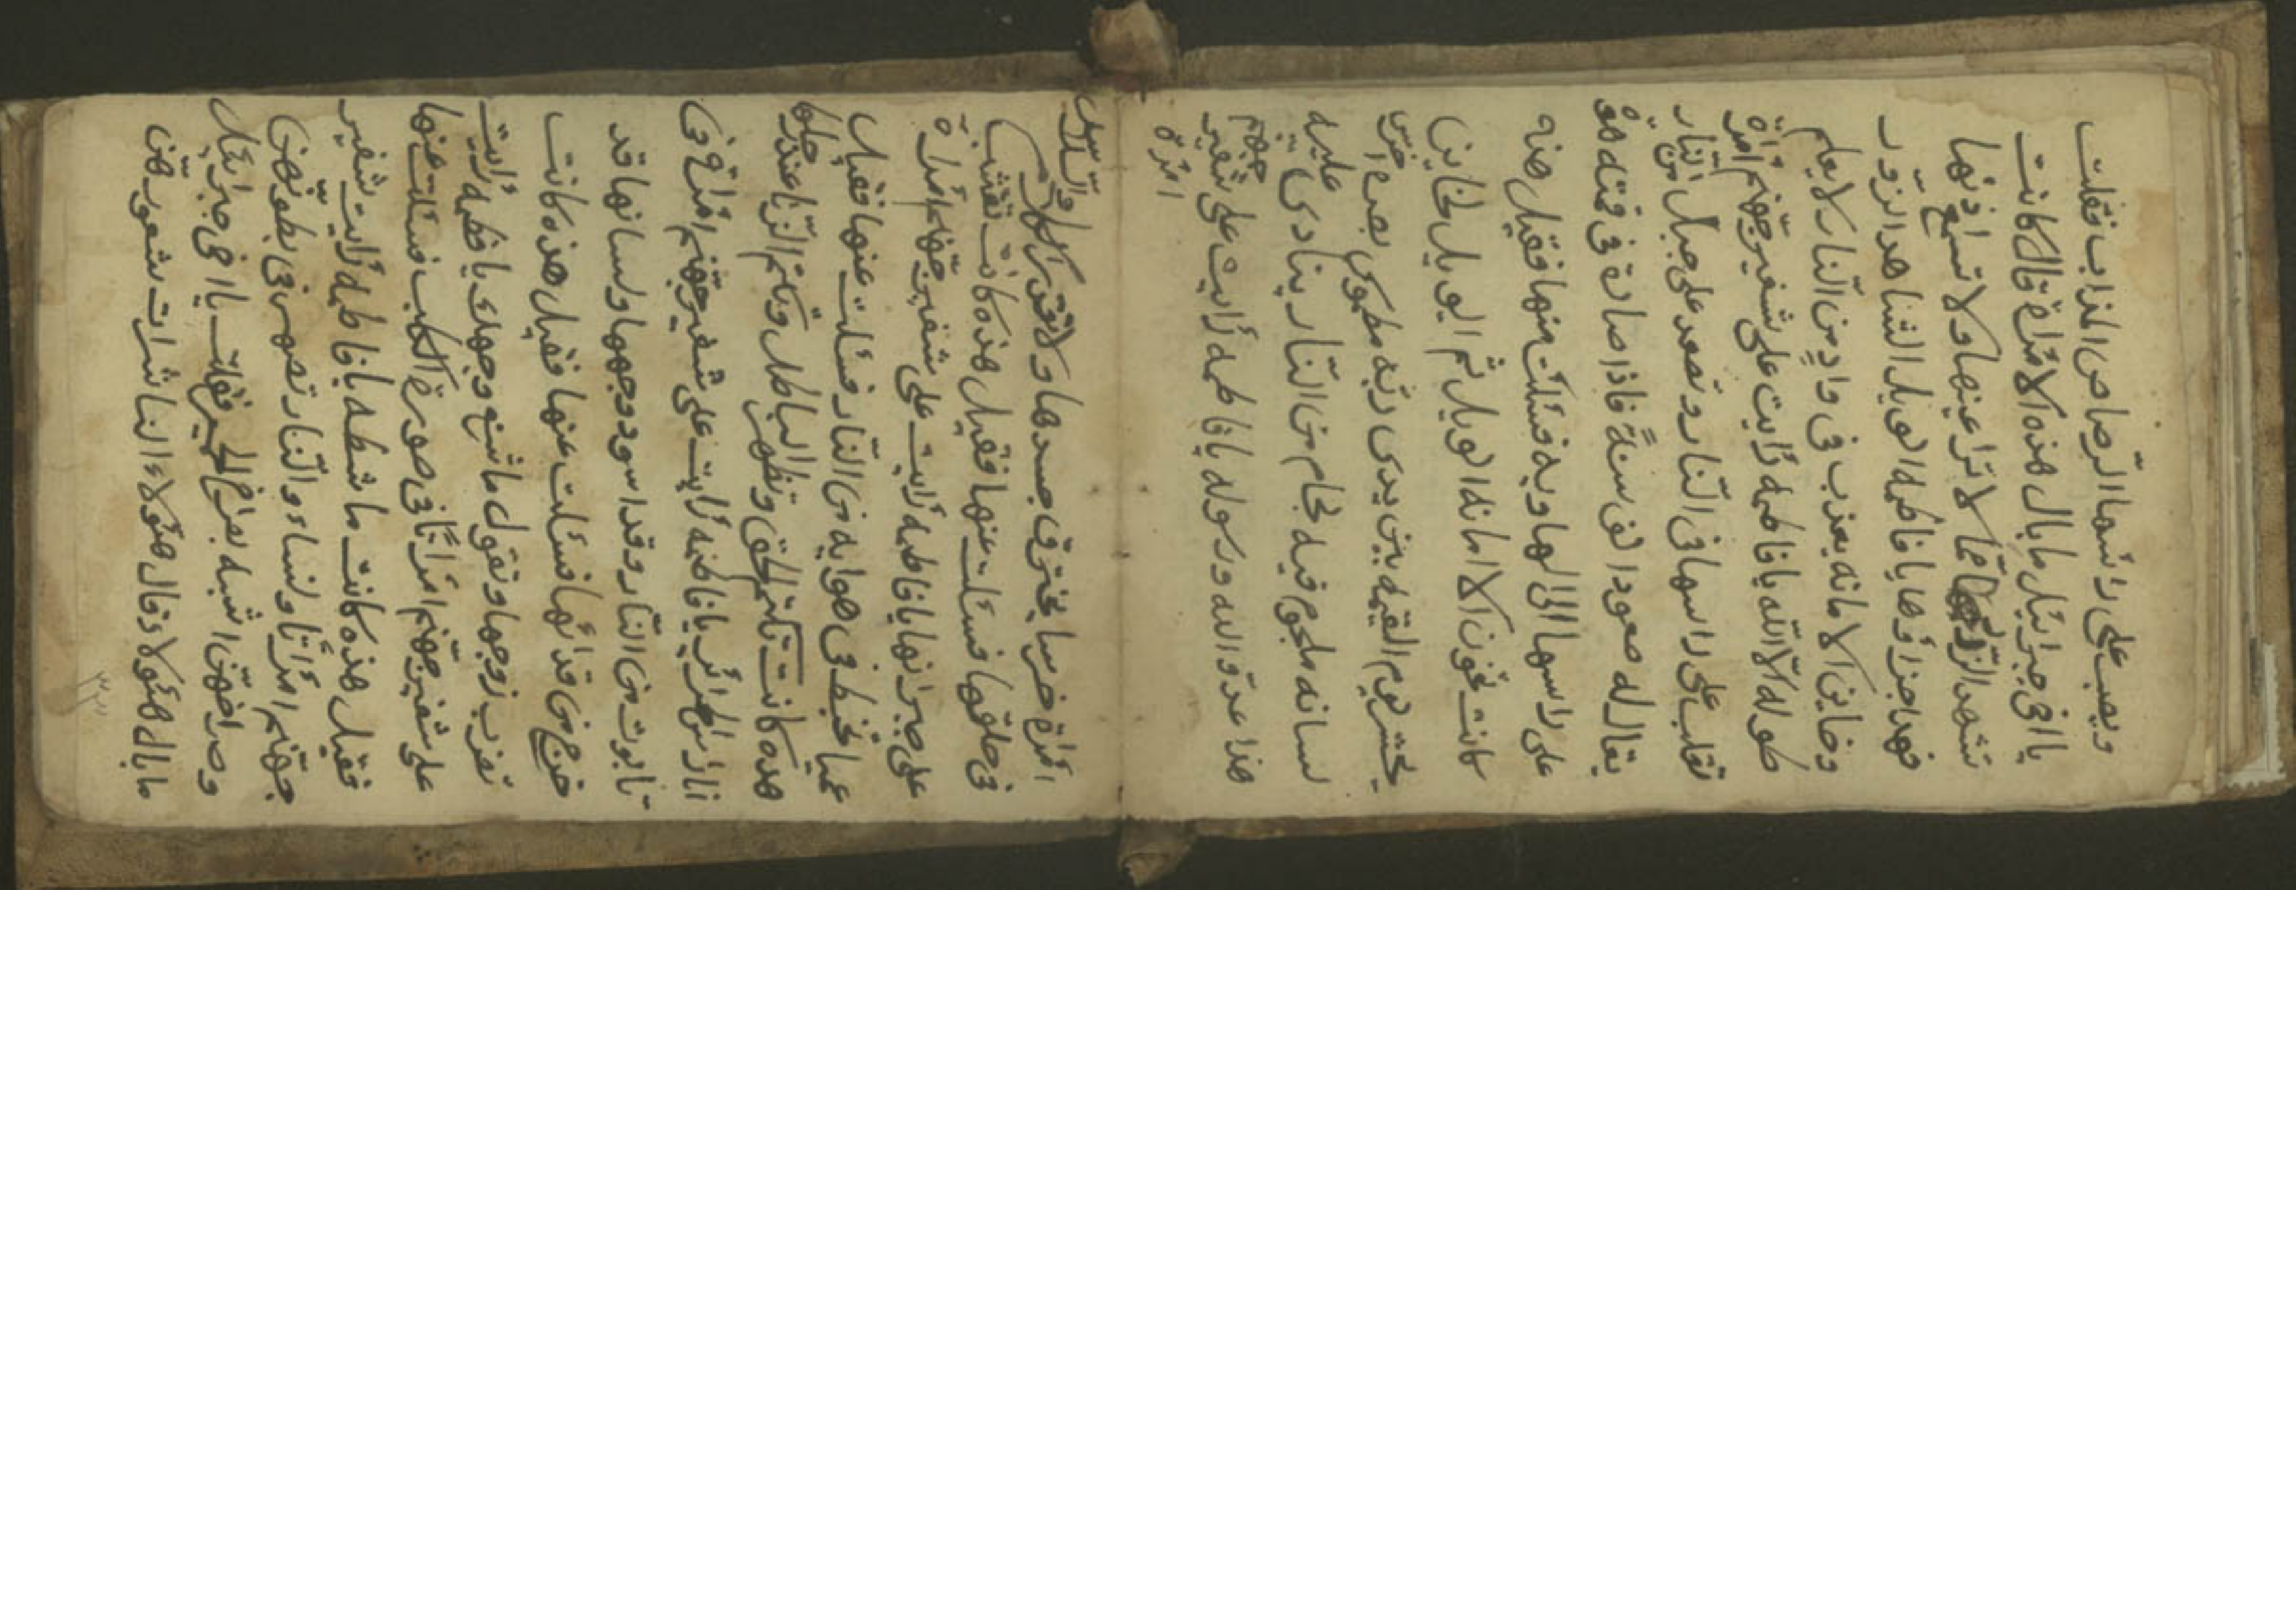 ويصب على رأسها الرصاص المذاب فقلت
يا اخى جبرائيل ما بال هذه الامرأة قال كانت
تشهد الزور مما لا تراعينها ولا تسمع اذنها
فهذا جزاؤها يا فاطمه الويل لشاهد الزور
وخاين الامانه يعذب فى وادٍ من النار لا يعلم
طوله الا الله يا فاطمه رأيت على شفير جهنم امرأة
تقلب على راسها فى النار وتصعد على جبل من النار
يقال له صعود الف سنةً فاذا صارت فى قنته هوة
على راسها الى الهاويه فسئلت عنها فقيل هذه
كانت تخون الامانه الويل ثم الويل لخاين
يحشر يوم القيمه بين يدى ربه مطموس بصره اخرس
لسانه ملجوم فيه لجام من النار ينادى عليه
هذا عدو الله ورسوله يا فاطمه رأيت على شفير جهنم
امرأة
امرأة خرسا يحترق جسدها ولا تقدر الكلام والسلاسل
فى حلقها فسئلت عنها فقيل هذه كانت تغتب
على جيرانها يا فاطمه رأيت على شفير جهنم امرأة
عميا تخبط فى هوايه من النار فسئلت عنها فقيل
هذه كانت تكتم الحق وتظهر الباطل وتكتم الزنا عند
يا فاطمه رأيت على شفير جهنم امرأة فى
تابوت من النار وقد اسود وجهها ولسانها قد
خرج من قفائها فسئلت عنها فقيل هذه كانت
تعزب زوجها وتقول ما اشنع وجهك يا فاطمه رأيت
على شفير جهنم امرأتاً فى صورة الكلب فسئلت عنها
فقيل هذه كانت ماشطه يا فاطمه رأيت شفير
جهنم امرأتاً ونساء والنار تصهر فى بطونهن
وصراخهن اشبه بصراخ الحمير فقلت يا اخى جبرائيل
ما بال هئولاء قال هئولاء الناشرات شعورهن